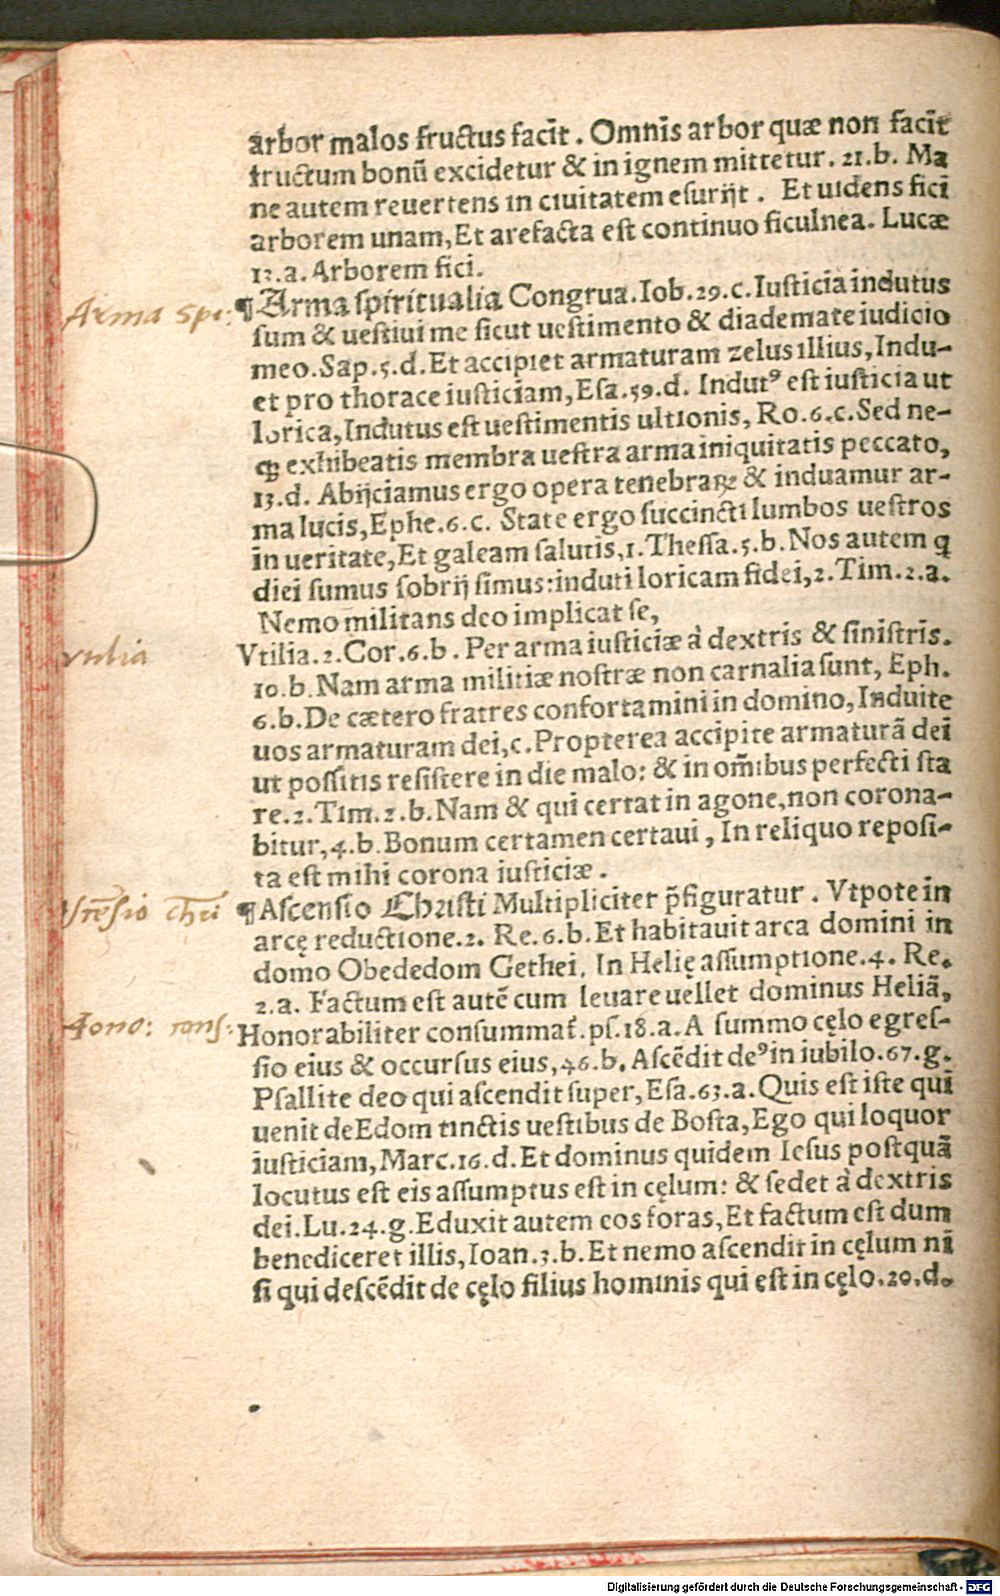 arbor malos fructus facit̄. Omnīs arbor quæ non facit̄
fructum bonū excidetur & in ignem mittetur. 21.b. Ma
ne autem reuertens in ciuitatem esurijt. Et uidens fici
arborem unam, Et arefacta est continuo ficulnea. Lucæ
13.a. Arborem fici.
Arma spi:
¶Arma spiritualia Congrua. Iob.29.c. Iusticia indutus
sum & uestiui me sicut uestimento & diademate iudicio
meo. Sap.5.d. Et accipiet armaturam zelus illius, Indu-
et pro thorace iusticiam, Esa.59.d. Indutꝰ est iusticia ut
lorica, Indutus est uestimentis ultionis, Ro.6.c. Sed ne-
ꝗ exhibeatis membra uestra arma iniquitatis peccato,
13.d. Abijciamus ergo opera tenebraꝝ & induamur ar-
ma lucis, Ephe.6.c. State ergo succincti lumbos uestros
in ueritate, Et galeam salutis, 1. Thessa.5.b. Nos autem q̄
diei sumus sobrij simus: induti loricam fidei, 2. Tim.2.a.
Nemo militans deo implicat se,
vtilia
Vtilia.2. Cor.6.b. Per arma iusticiæ à dextris & sinistris.
10.b. Nam arma militiæ nostræ non carnalia sunt, Eph.
6.b. De cætero fratres confortamini in domino, Induite
uos armaturam dei, c. Propterea accipite armaturā dei
ut possitis resistere in die malo: & in om̄ibus perfecti sta
re.2. Tim.2.b. Nam & qui certat in agone, non corona-
bitur, 4.b. Bonum certamen certaui, In reliquo reposi-
ta est mihi corona iusticiæ.
chri
¶Ascensio Christi Multipliciter p̄figuratur. Vtpote in
arcę reductione.2. Re.6.b. Et habitauit arca domini in
domo Obededom Gethei, In Helię assumptione.4. Re.
2.a. Factum est autē cum leuare uellet dominus Heliā,
Hono: cons:
Honorabiliter consummat̄. ps.18.a. A summo cęlo egres-
sio eius & occursus eius, 46.b. Ascēdit deꝰ in iubilo.67.g.
Psallite deo qui ascendit super, Esa.63.a. Quis est iste qui
uenit de Edom tinctis uestibus de Bosta, Ego qui loquor
iusticiam, Marc.16.d. Et dominus quidem Iesus postquā
locutus est eis assumptus est in cęlum: & sedet à dextris
dei. Lu.24.g. Eduxit autem eos foras, Et factum est dum
benediceret illis, Ioan.3.b. Et nemo ascendit in cęlum ni
si qui descēdit de cęlo filius hominis qui est in cęlo.20.d.
Digitalisierung gefördert durch die Deutsche Forschungsgemeinschaft - DFG